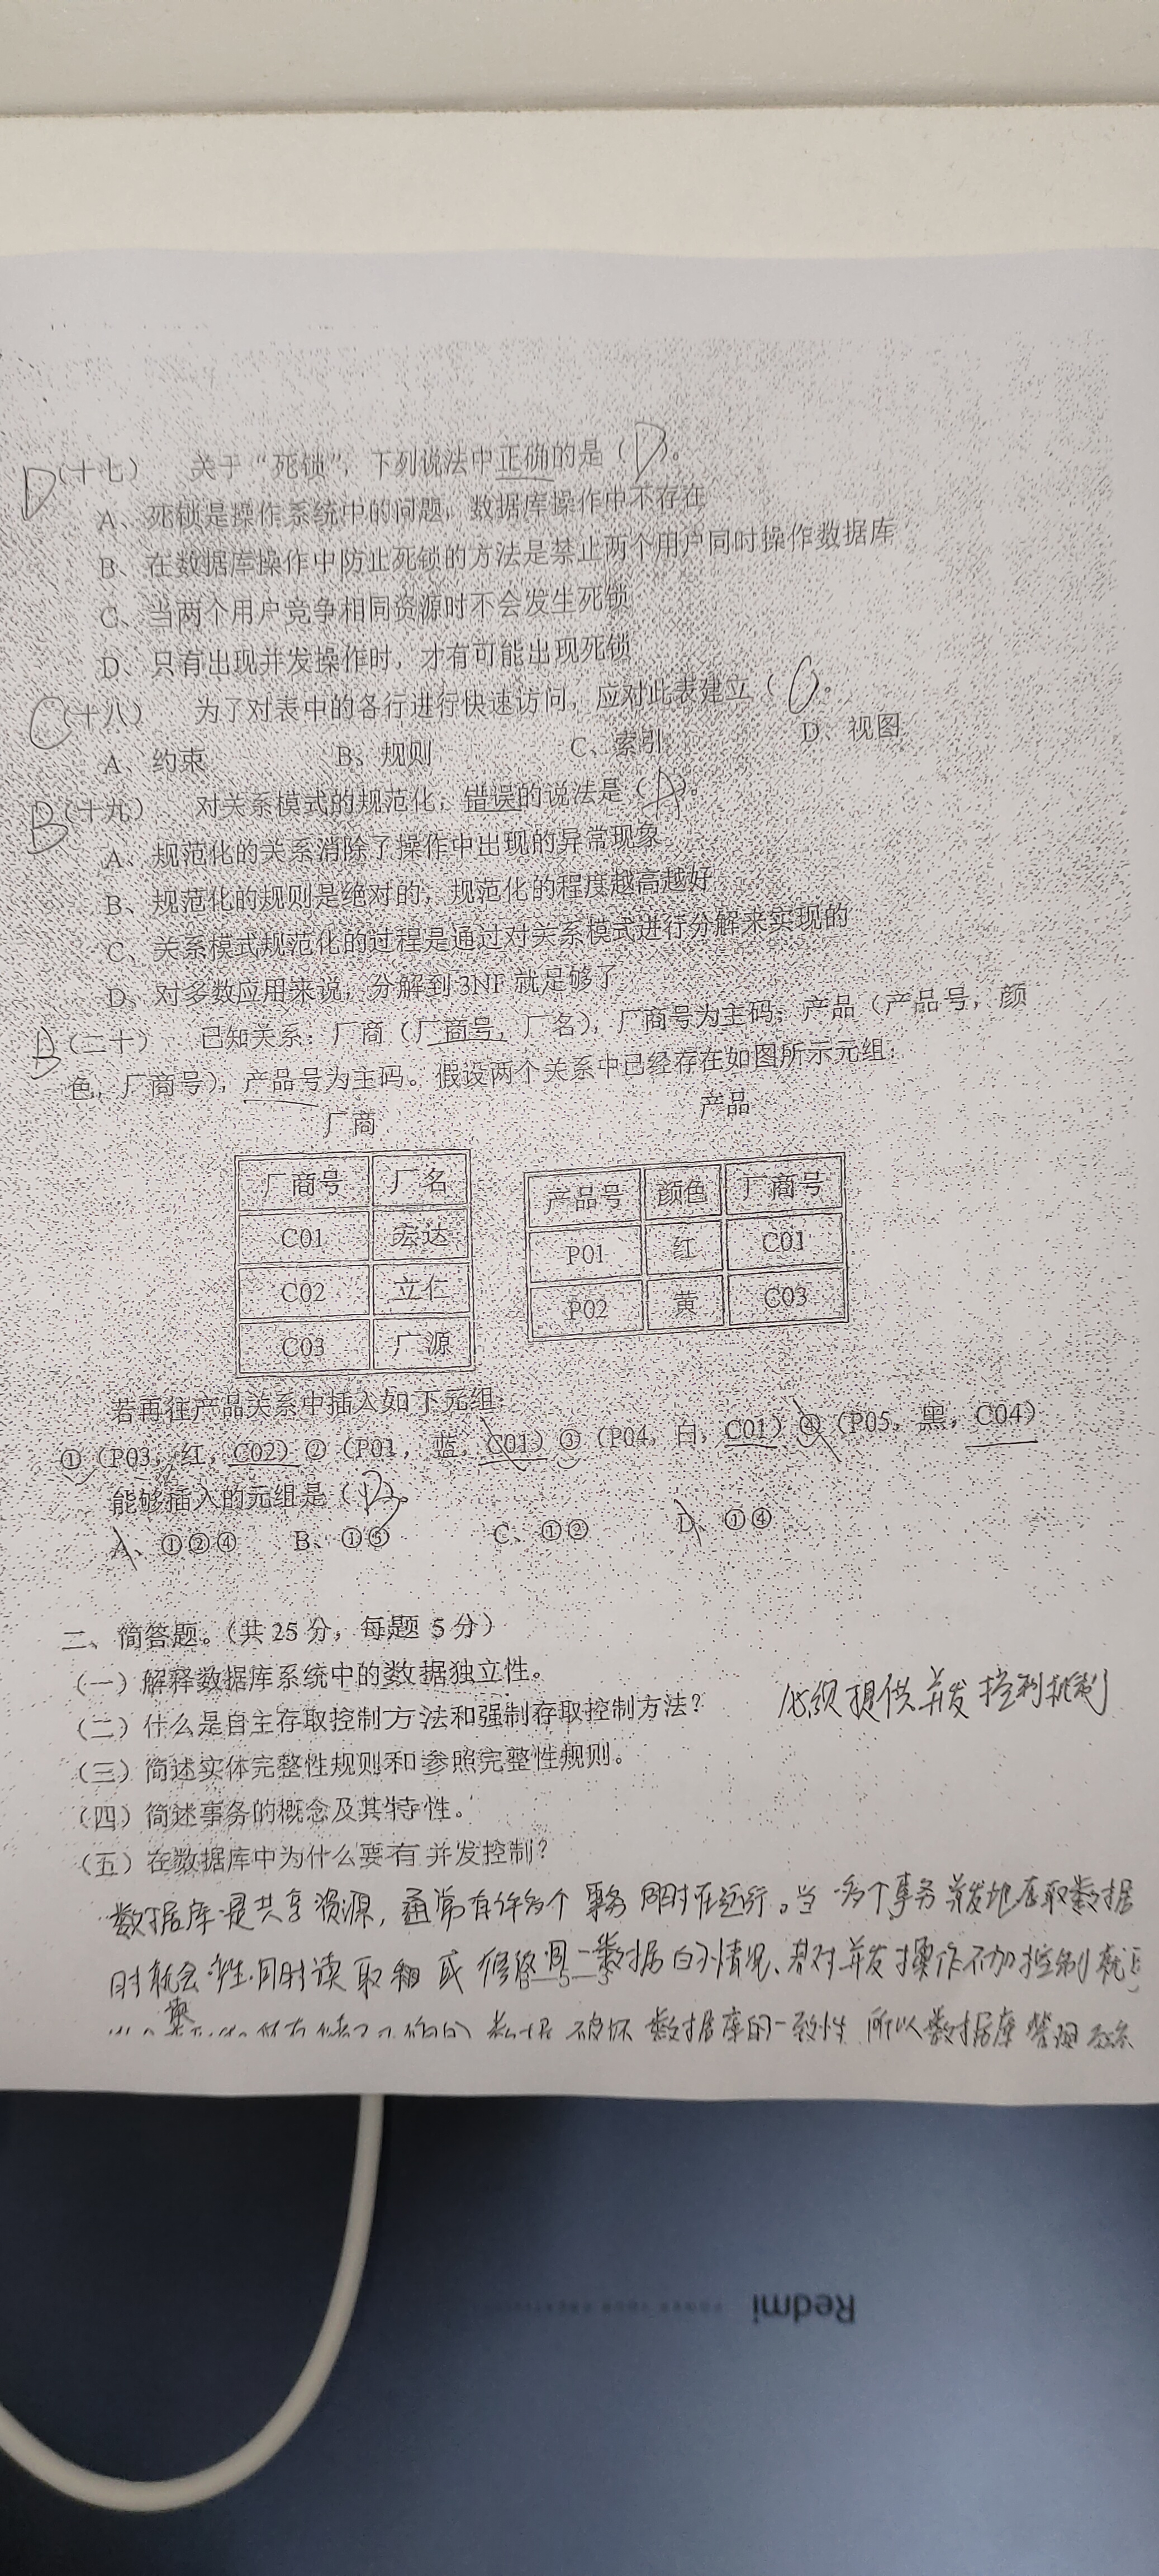 D（十七） 关于“死锁”，下列说法中正确的是（D）。
A、死锁是操作系统中的问题，数据库操作中不存在
B、在数据库操作中防止死锁的方法是禁止两个用户同时操作数据库
C、当两个用户竞争相同资源时不会发生死锁
D、只有出现并发操作时，才有可能出现死锁
C（十八） 为了对表中的各行进行快速访问，应对此表建立（C）。
A、约束 B、规则 C、索引 D、视图
B（十九） 对关系模式的规范化，错误的说法是（A）。
A、规范化的关系消除了操作中出现的异常现象
B、规范化的规则是绝对的，规范化的程度越高越好
C、关系模式规范化的过程是通过对关系模式进行分解来实现的
D、对多数应用来说，分解到3NF就足够了
B（二十） 已知关系：厂商（厂商号，厂名），厂商号为主码；产品（产品号，颜
色，厂商号），产品号为主码。假设两个关系中已经存在如图所示元组：
厂商 产品
厂商号 厂名
C01 宏达
C02 立仁
C03 广源
产品号 颜色 厂商号
P01 红 C01
P02 黄 C03
若再往产品关系中插入如下元组：
①（P03，红，C02）②（P01，蓝，C01）③（P04，白，C01）④（P05，黑，C04）
能够插入的元组是（B）。
A、①②④ B、①③ C、①② D、①④
二、简答题。（共25分，每题 5分）
（一）解释数据库系统中的数据独立性。
（二）什么是自主存取控制方法和强制存取控制方法？
必须提供并发控制机制
（三）简述实体完整性规则和参照完整性规则。
（四）简述事务的概念及其特性。
（五）在数据库中为什么要有并发控制？
数据库是共享资源，通常有许多个事务同时在运行。当多个事务并发地存取数据
时就会产生同时读取和或修改同一数据的情况、若对并发操作不加控制就
数据 破坏数据库的一致性 所以数据库管理系统
Redmi